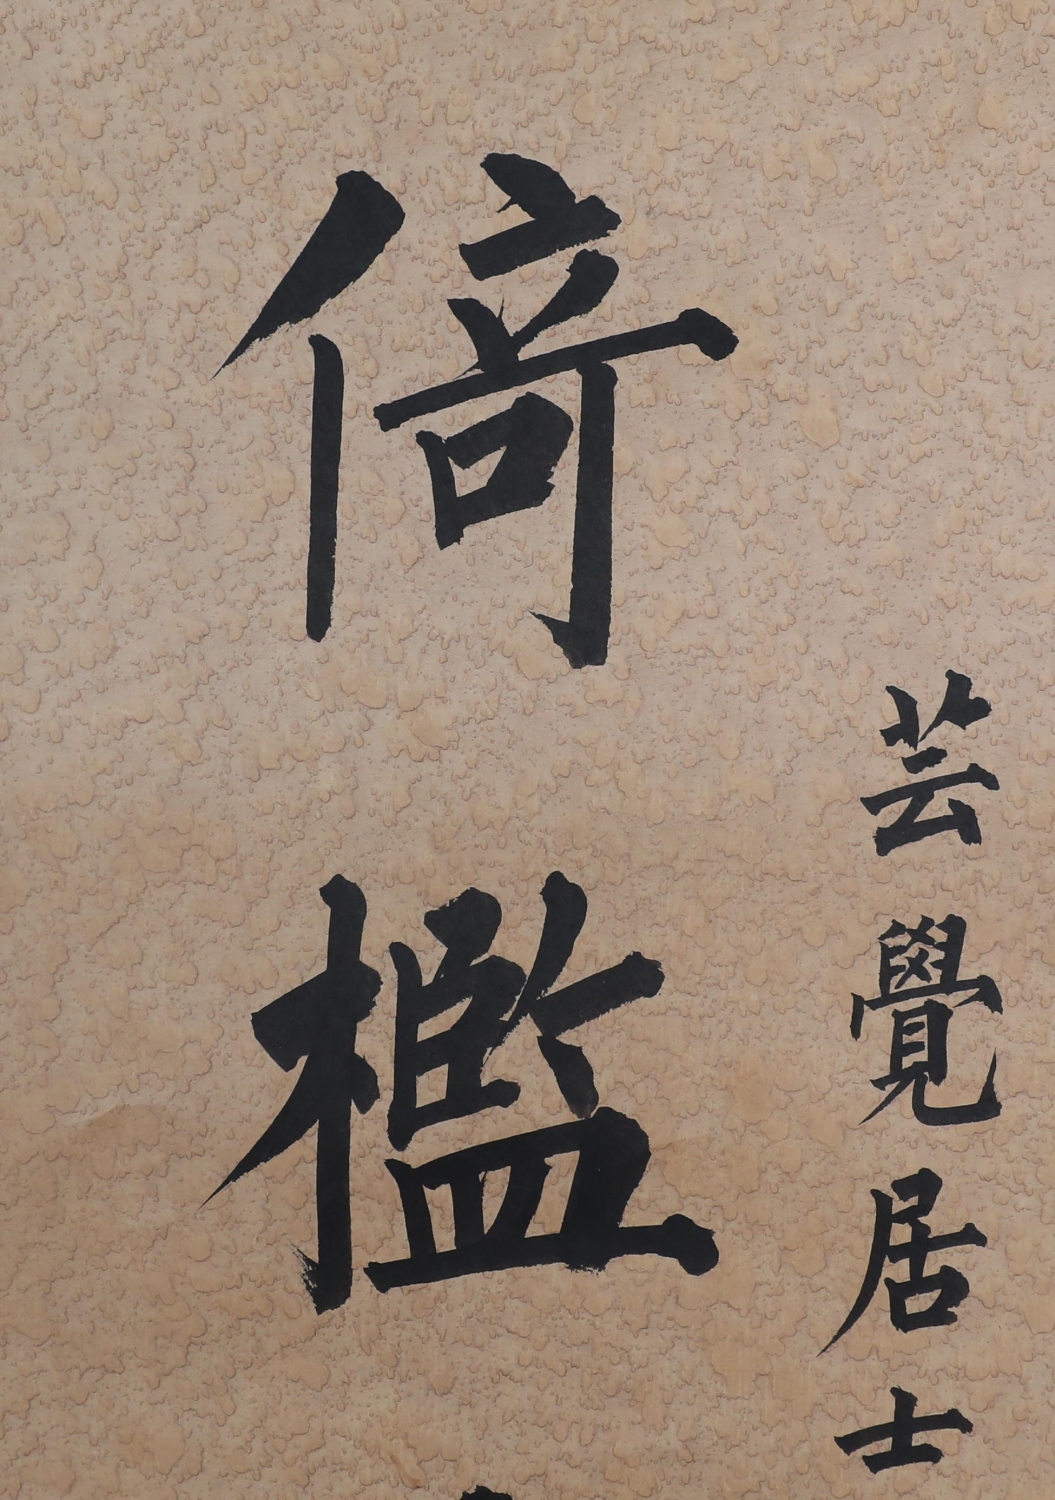 芸覺居士
倚檻